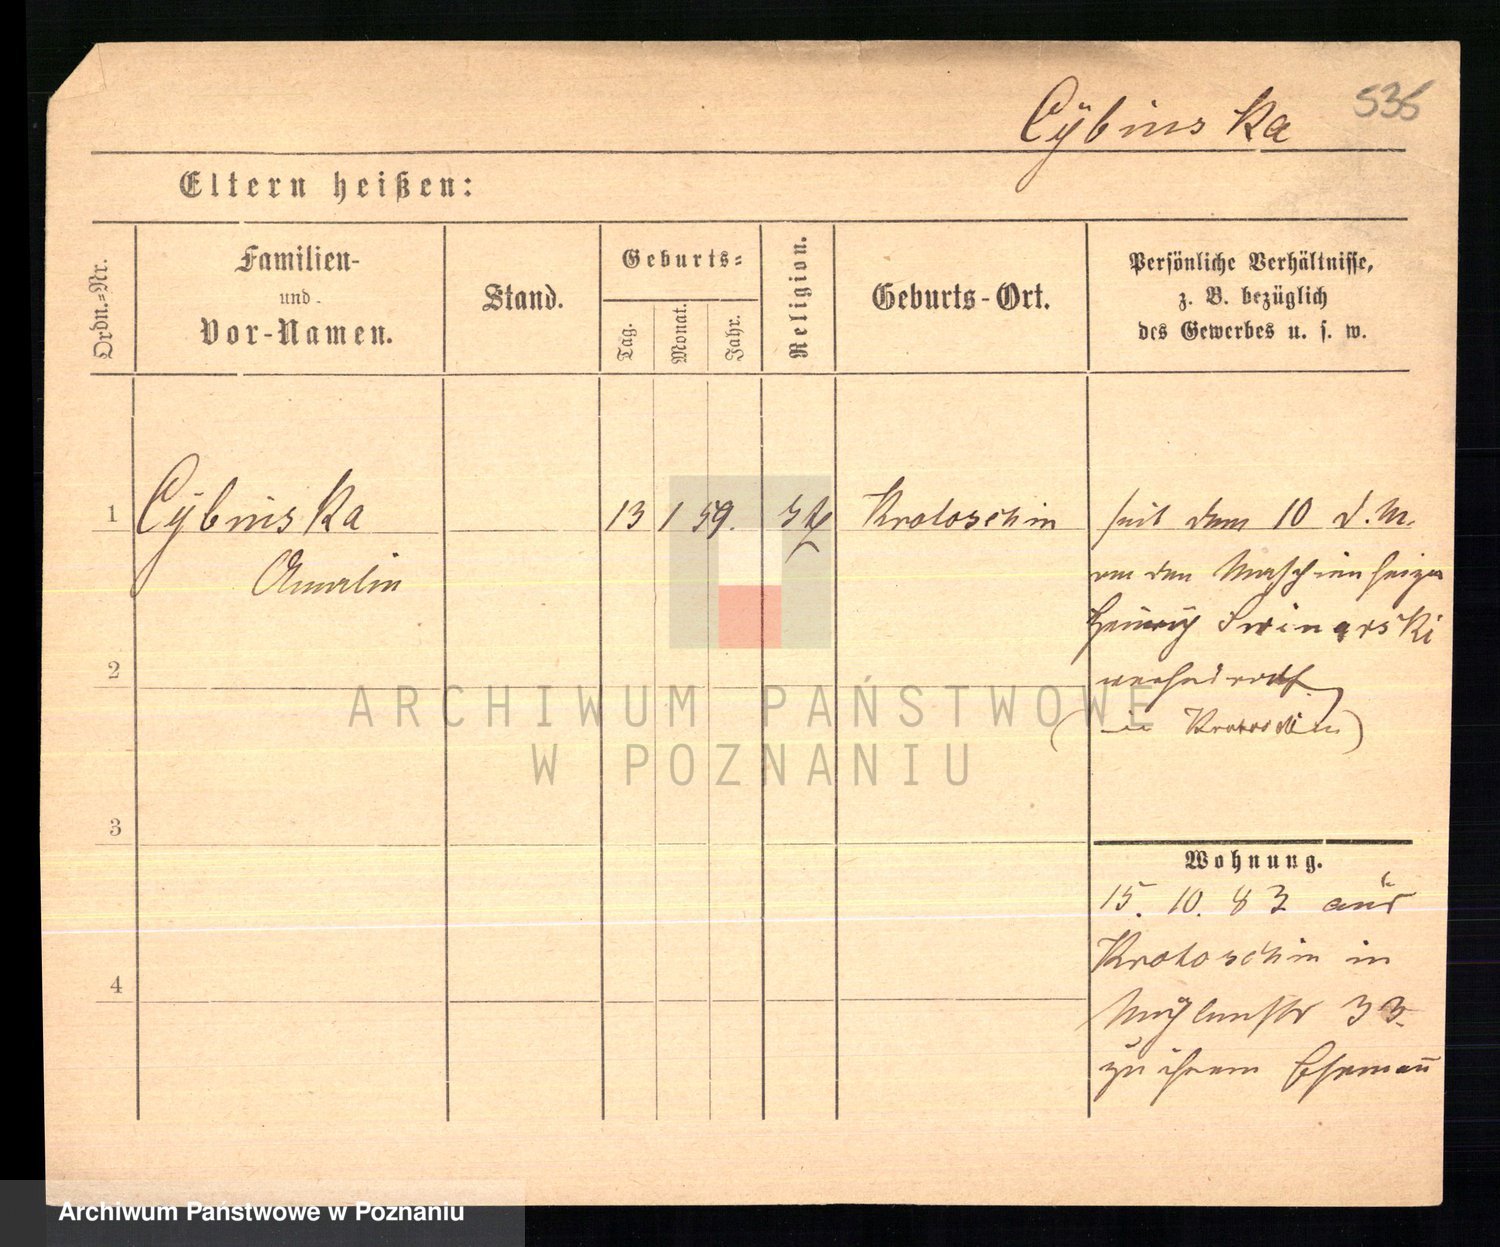 Cÿbinska
535
Eltern heißen:
Ordn.=Nr.
Familien-
und
Vor-Namen.
Stand.
Geburts=
Tag.
Monat.
Jahr.
Religion.
Geburts-Ort.
Persönliche Verhältnisse,
z. B. bezüglich
des Gewerbes u. s. w.
1
Cÿbinska
Amalia
13
1
59.
Krotoschin
seit dem 10 d. M.
an den Maschinenheizer
Heinrich Swinarski
verheirath.
(in Krotoschin)
2
3
4
Wohnung.
15. 10. 83 aus
Krotoschin in
Mühlenstr 33.
zu ihrem Ehemañ
ARCHIWUM PAŃSTWOWE
W POZNANIU
Archiwum Państwowe w Poznaniu